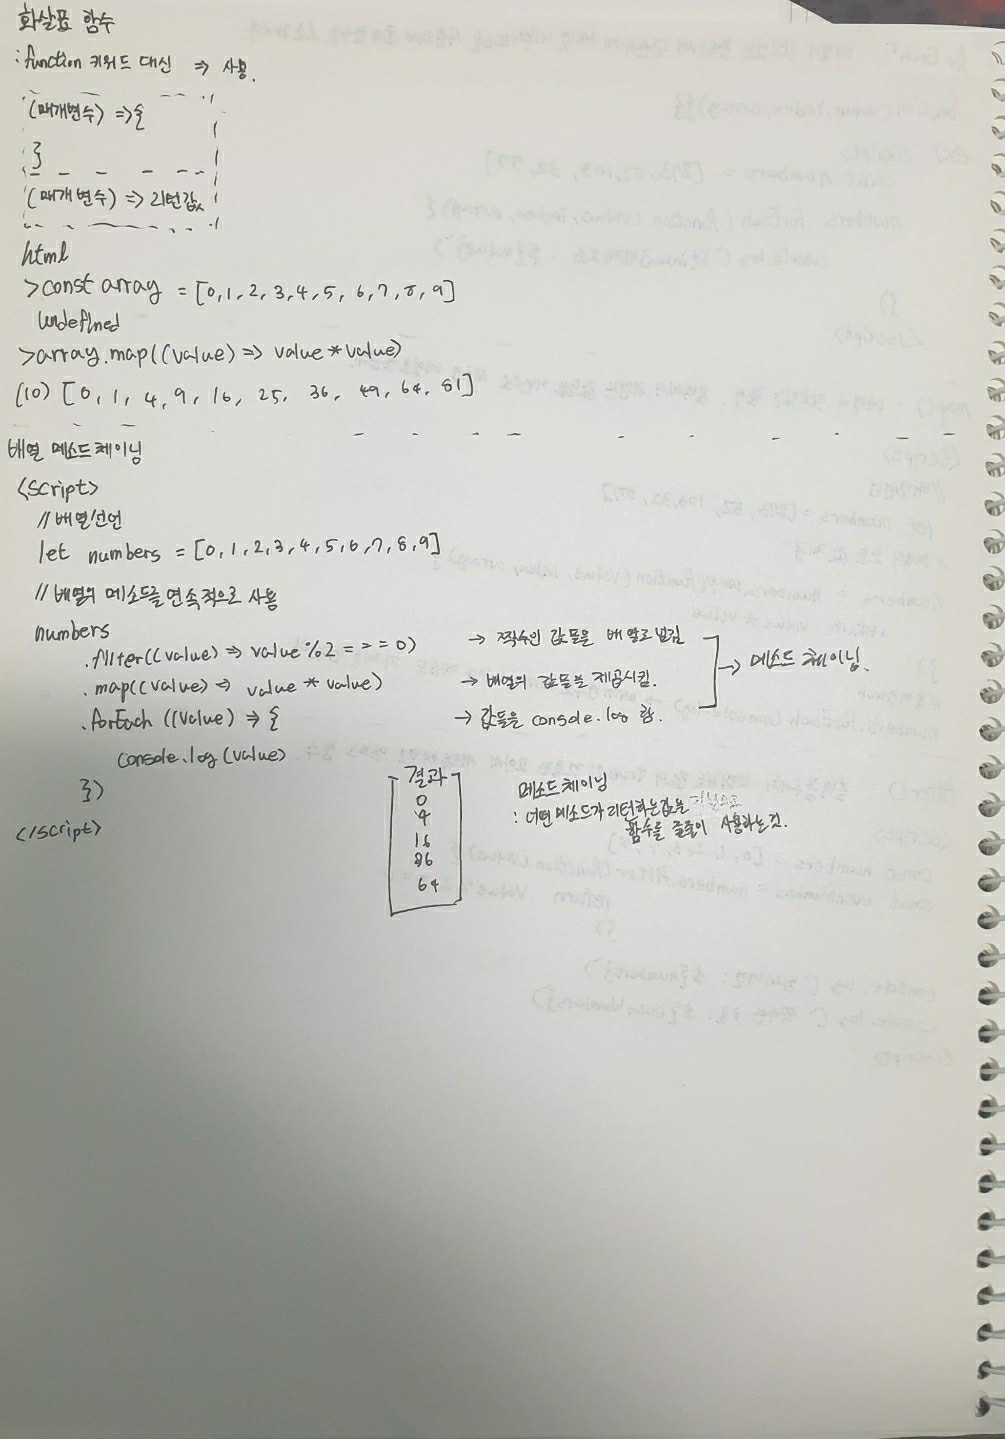 화살표 함수
: function 키워드 대신 => 사용.
(매개변수) => {
}
(매개변수) => 리턴값
html
>const array = [0,1,2,3,4,5,6,7,8,9]
undefined
>array.map((value) => value * value)
(10) [0, 1, 4, 9, 16, 25, 36, 49, 64, 81]
배열 메소드 체이닝
<script>
// 배열선언
let numbers = [0,1,2,3,4,5,6,7,8,9]
// 배열의 메소드를 연속적으로 사용
numbers
.filter((value) => value %2 === 0) → 짝수인 값들을 배열로 넘김
.map((value) => value * value) → 배열의 값들을 제곱시킴.
→ 메소드 체이닝.
.forEach ((value) => { → 값들을 console.log 함.
console.log (value)
})
</script>
결과
0
4
16
36
64
메소드 체이닝
: 어떤 메소드가 리턴하는 값을
함수를 줄줄이 사용하는 것.